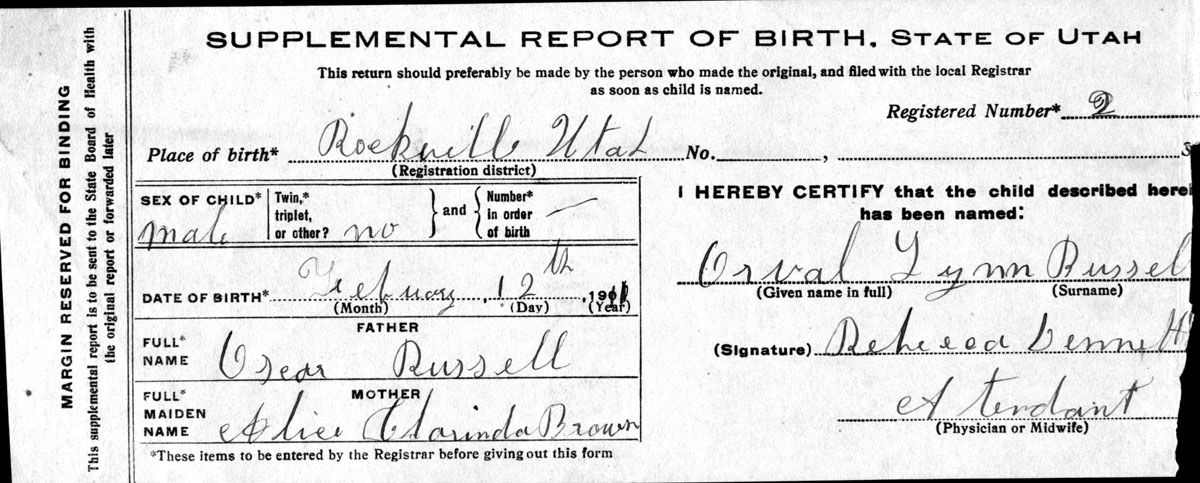 SUPPLEMENTAL REPORT OF BIRTH, STATE OF UTAH
This return should preferably be made by the person who made the original, and filed with the local Registrar
as soon as child is named.
Registered Number* 2
Place of birth* Rockville Utah No. ,
(Registration district)
SEX OF CHILD* male
Twin,* triplet, or other? no
and
Number* in order of birth —
DATE OF BIRTH* Febuary 12th, 1911
(Month) (Day) (Year)
FATHER
FULL* NAME Oscar Russell
MOTHER
FULL* MAIDEN NAME Alice Clarinda Brown
*These items to be entered by the Registrar before giving out this form
I HEREBY CERTIFY that the child described herei
has been named:
Orval Lynn Russel
(Given name in full) (Surname)
(Signature) Rebecca
Atendant
(Physician or Midwife)
MARGIN RESERVED FOR BINDING
This supplemental report is to be sent to the State Board of Health with
the original report or forwarded later